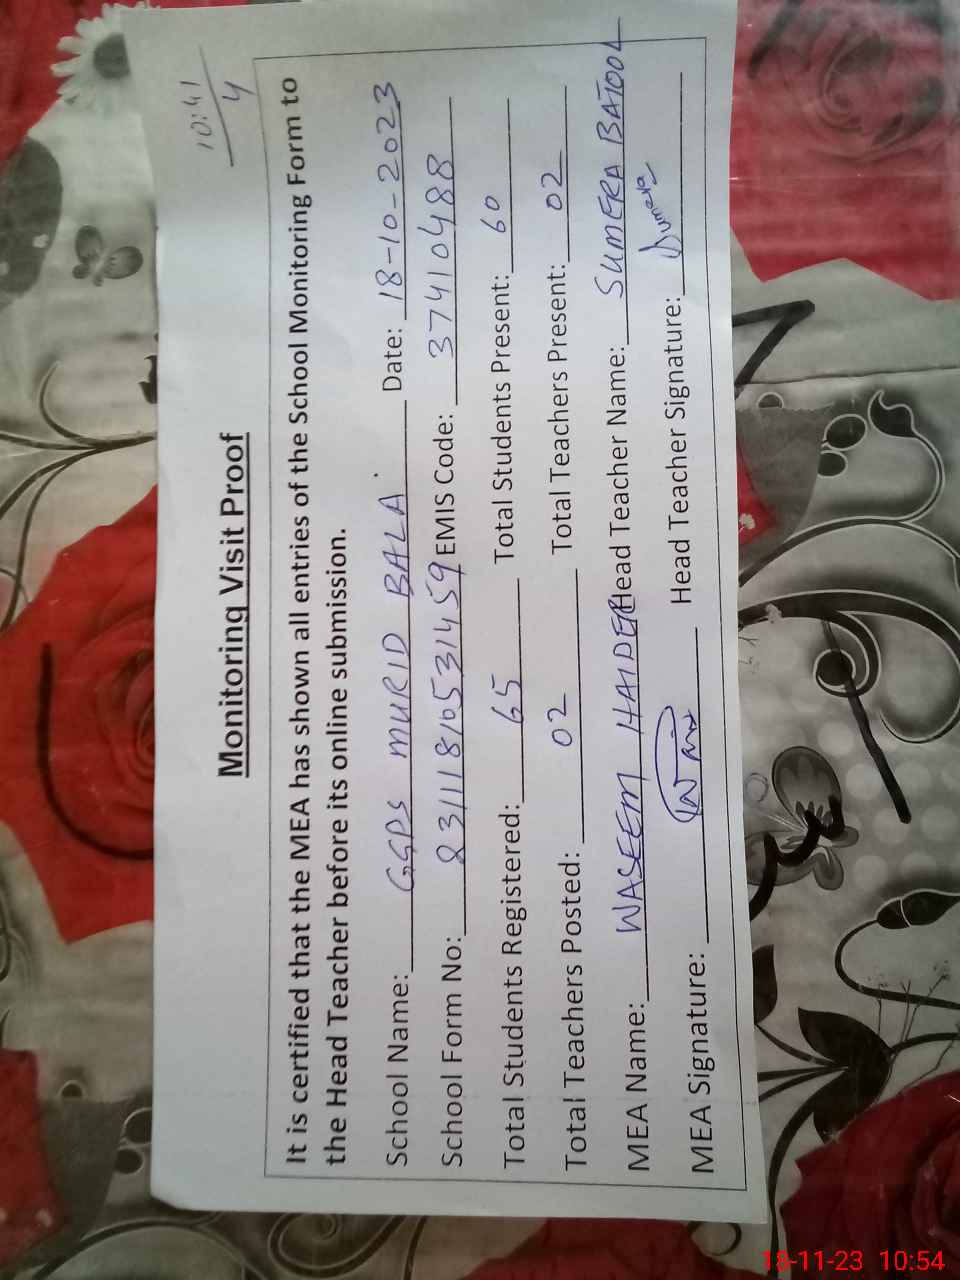 10:41
4
Monitoring Visit Proof
It is certified that the MEA has shown all entries of the School Monitoring Form to
the Head Teacher before its online submission.
School Name: GGPS MURID BALA Date: 18-10-2023
School Form No: 231118105331459 EMIS Code: 37410488
Total Students Registered: 65 Total Students Present: 60
Total Teachers Posted: 02 Total Teachers Present: 02
MEA Name: WASEEM HAIDER Head Teacher Name: SUMERA BATOOL
MEA Signature: Head Teacher Signature: Sumera
18-11-23 10:54